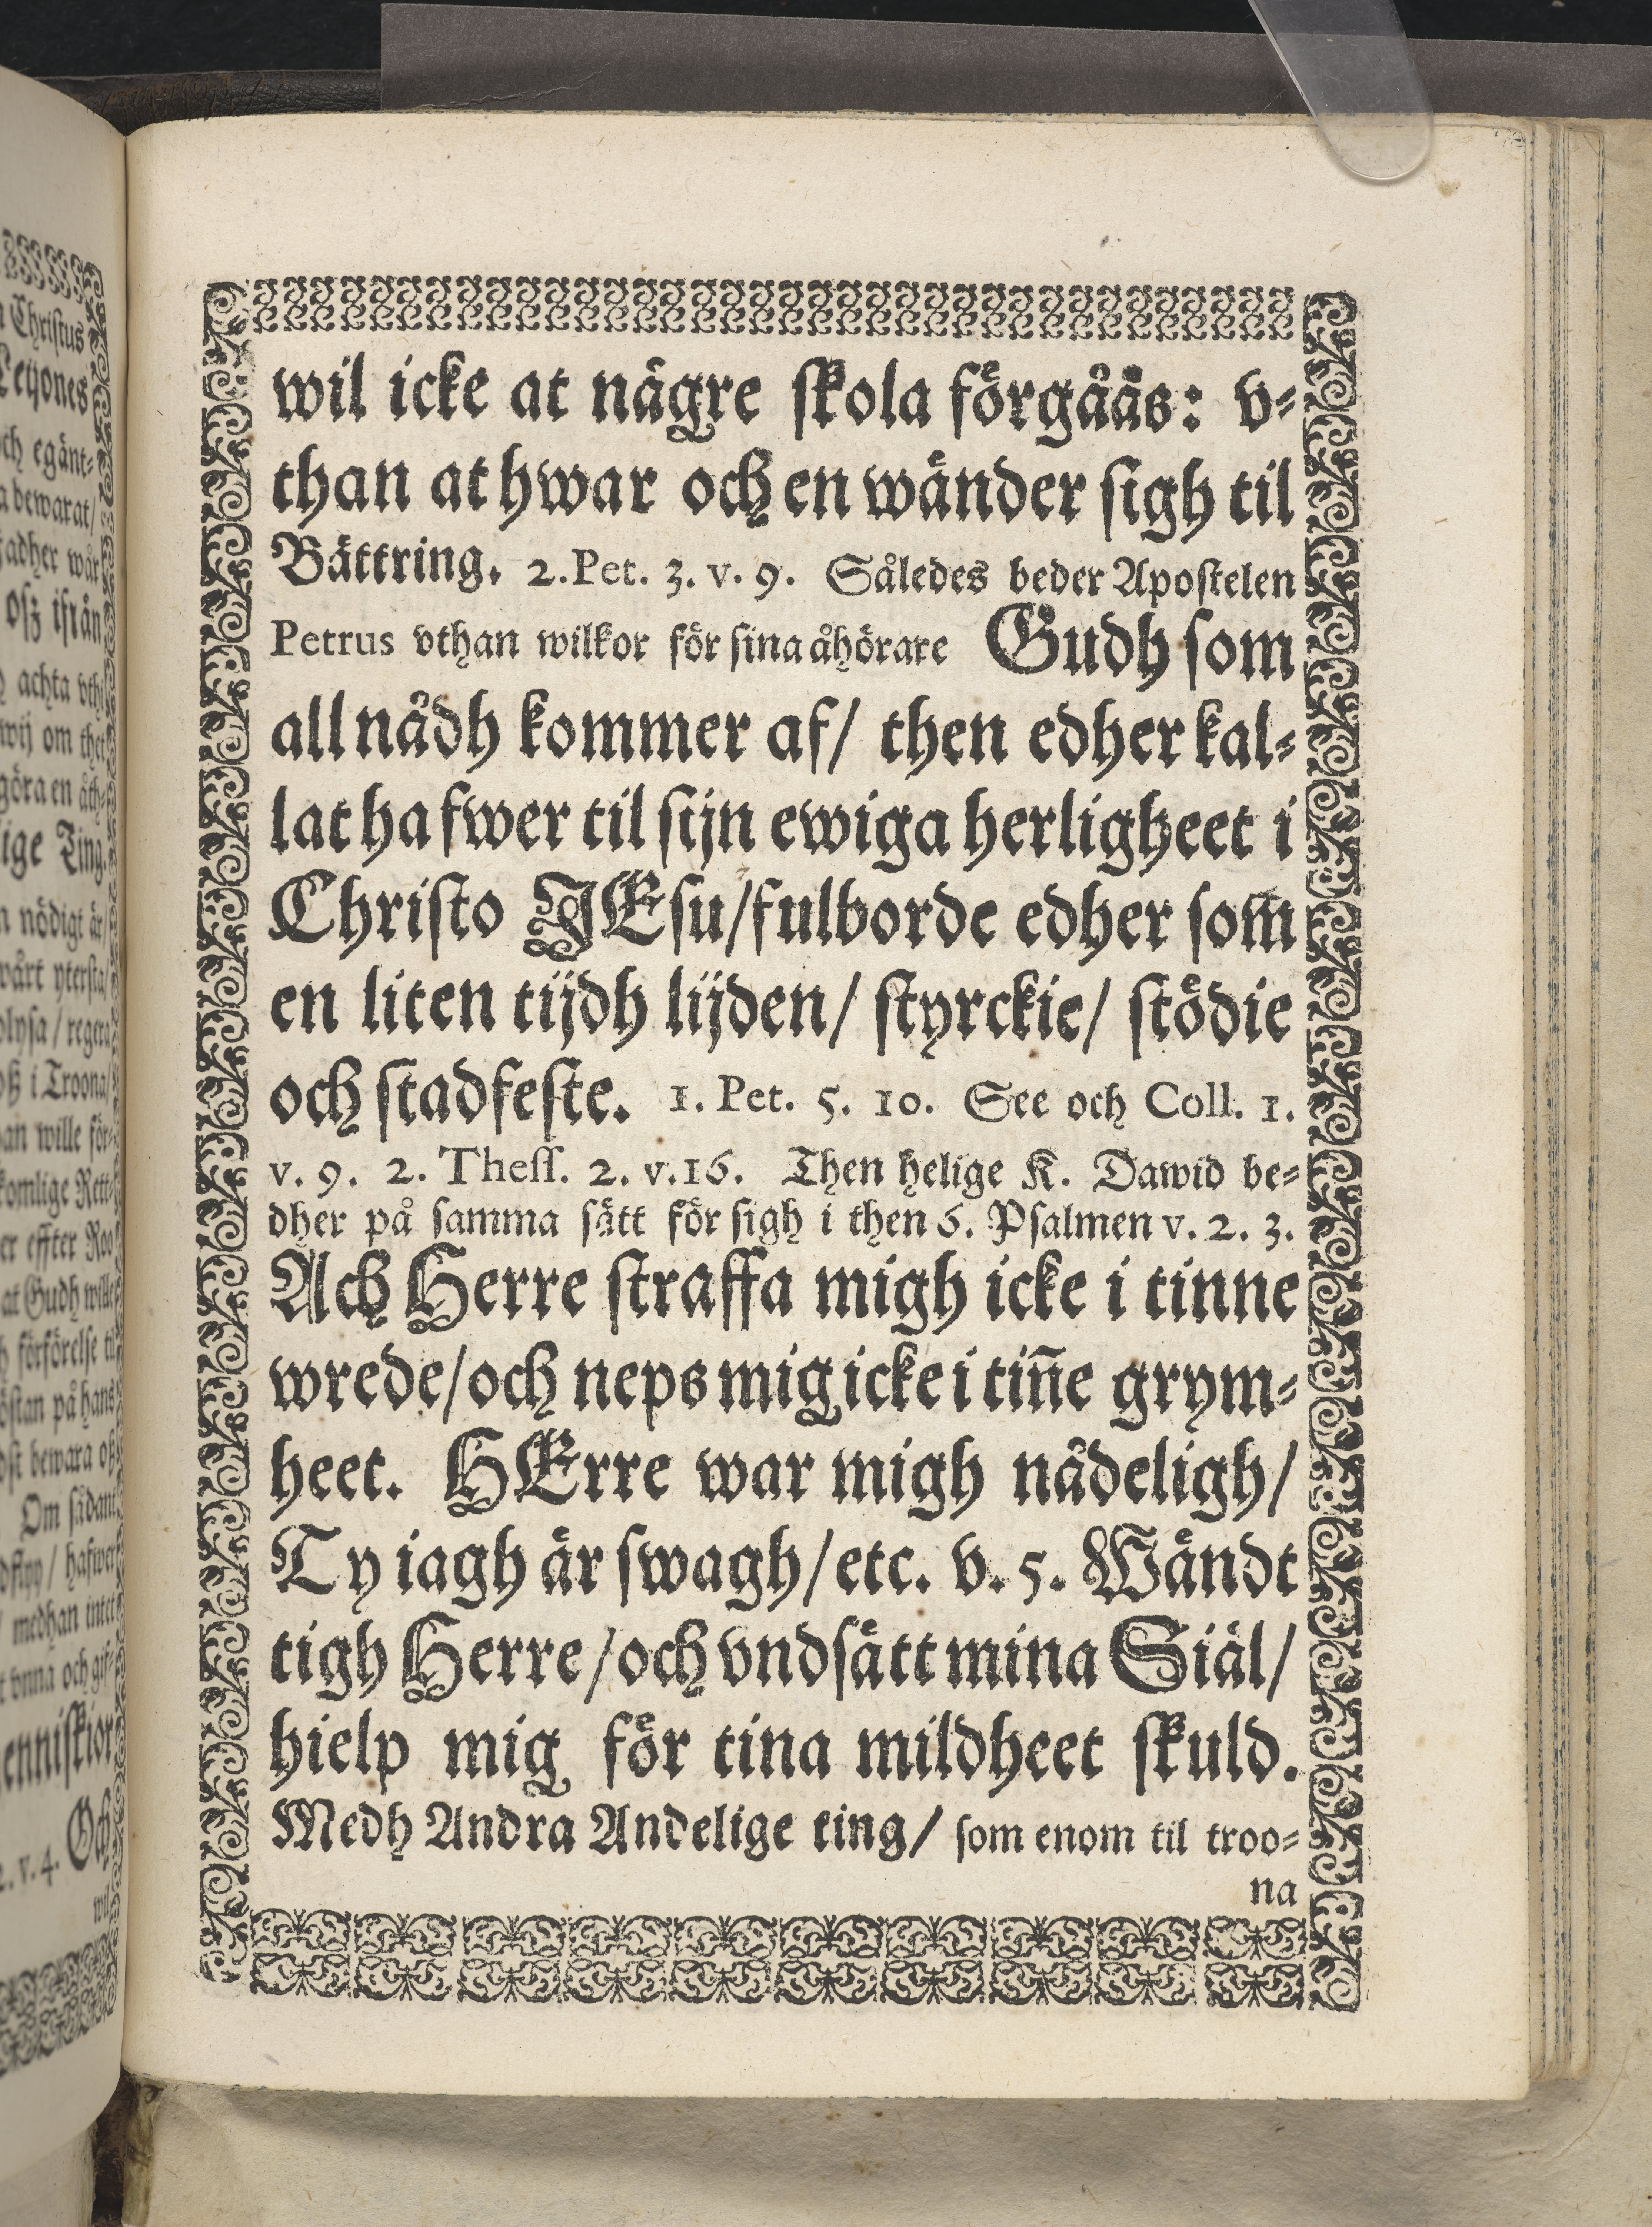 wil icke at någre skola förgåås: v-
than at hwar och en wänder sigh til
Bättring. 2. Pet. 3. v. 9. Således beder Apostelen
Petrus vthan wilkor för sina åhörare Gudh som
all nådh kommer af/ then edher kal-
lat hafwer til sijn ewiga herligheet i
Christo JEsu/fulborde edher som
en liten tijdh lijden/ styrckie/ stödie
och stadfeste. 1. Pet. 5. 10. See och Coll. 1.
v. 9. 2. Thess. 2. v. 16. Then helige K. Dawid be-
dher på samma sätt för sigh i then 6. Psalmen v. 2. 3.
Ach Herre straffa migh icke i tinne
wrede/och neps mig icke i tiñe grym-
heet. HErre war migh nådeligh/
Ty iagh är swagh/etc. v. 5. Wändt
tigh Herre/och vndsätt mina Siäl/
hielp mig för tina mildheet skuld.
Medh Andra Andelige ting/ som enom til troo-
na